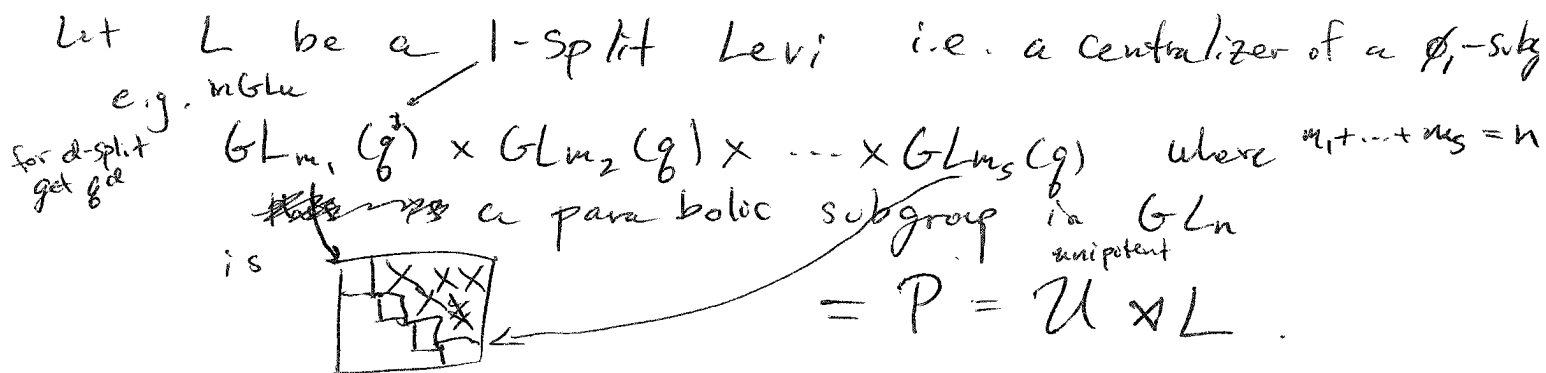 Let L be a 1-split Levi i.e. a centralizer of a ϕ₁-subg
e.g. in GLn
for d-split get q^d
GL_{m_1}(q^1) × GL_{m_2}(q) × ... × GL_{m_s}(q) where m_1+...+m_s = n
a parabolic subgroup in GLn
is
= P = U ⋊ L.
unipotent